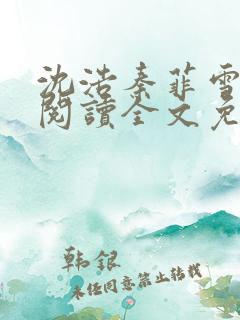 沈浩秦菲雪
閱讀全文免
韩银
未经同意禁止转载